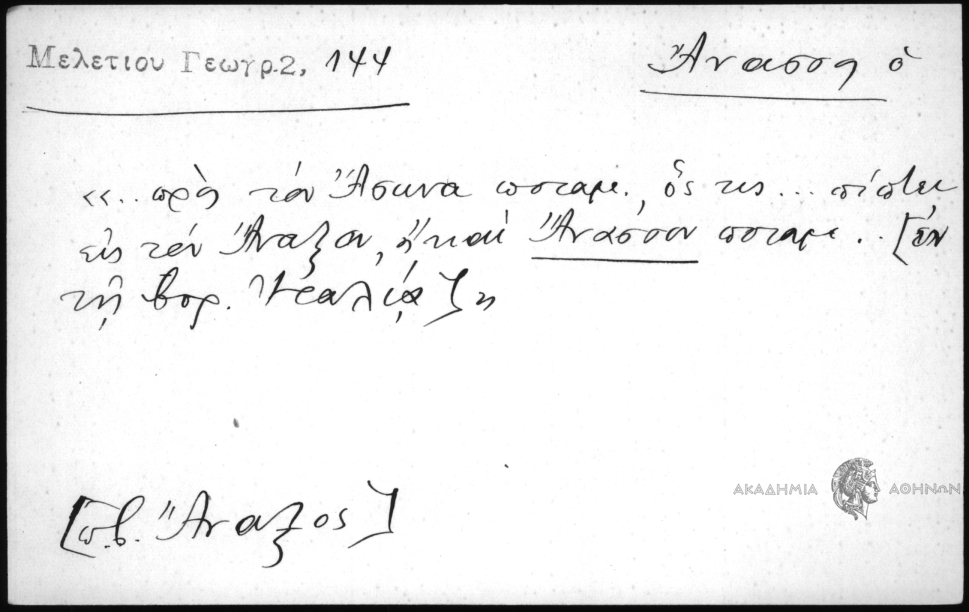 Μελετίου Γεωγρ.2, 144
Ἄνασσος ὁ
«... πρὸς τὸν Ἄσωνα ποταμ., ὅς τις ... πίπτει
εἰς τὸν Ἄναξον, ἢ καὶ Ἄνασσον ποταμ... [ἐν
τῇ βορ. Ἰταλίᾳ]»
[π.β. Ἄναξος]
ΑΚΑΔΗΜΙΑ ΑΘΗΝΩΝ